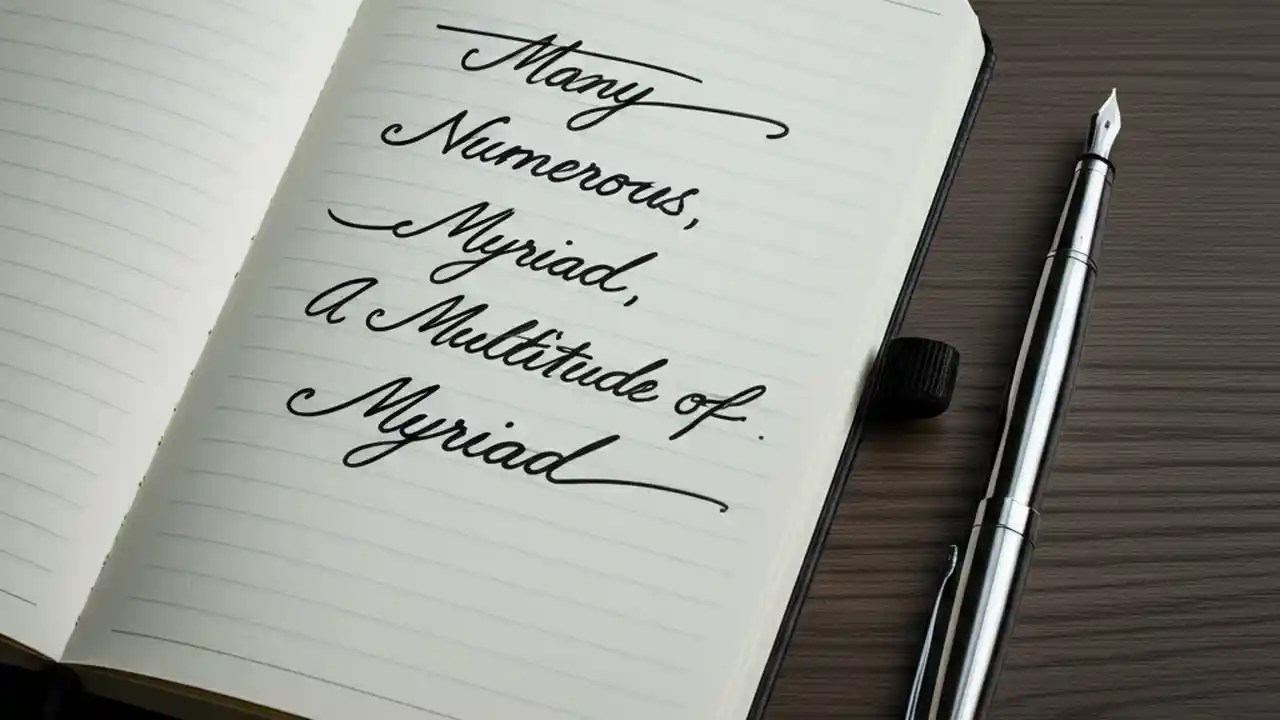 Many
Numerous,
Myriad,
A Multitude of.
Myriad